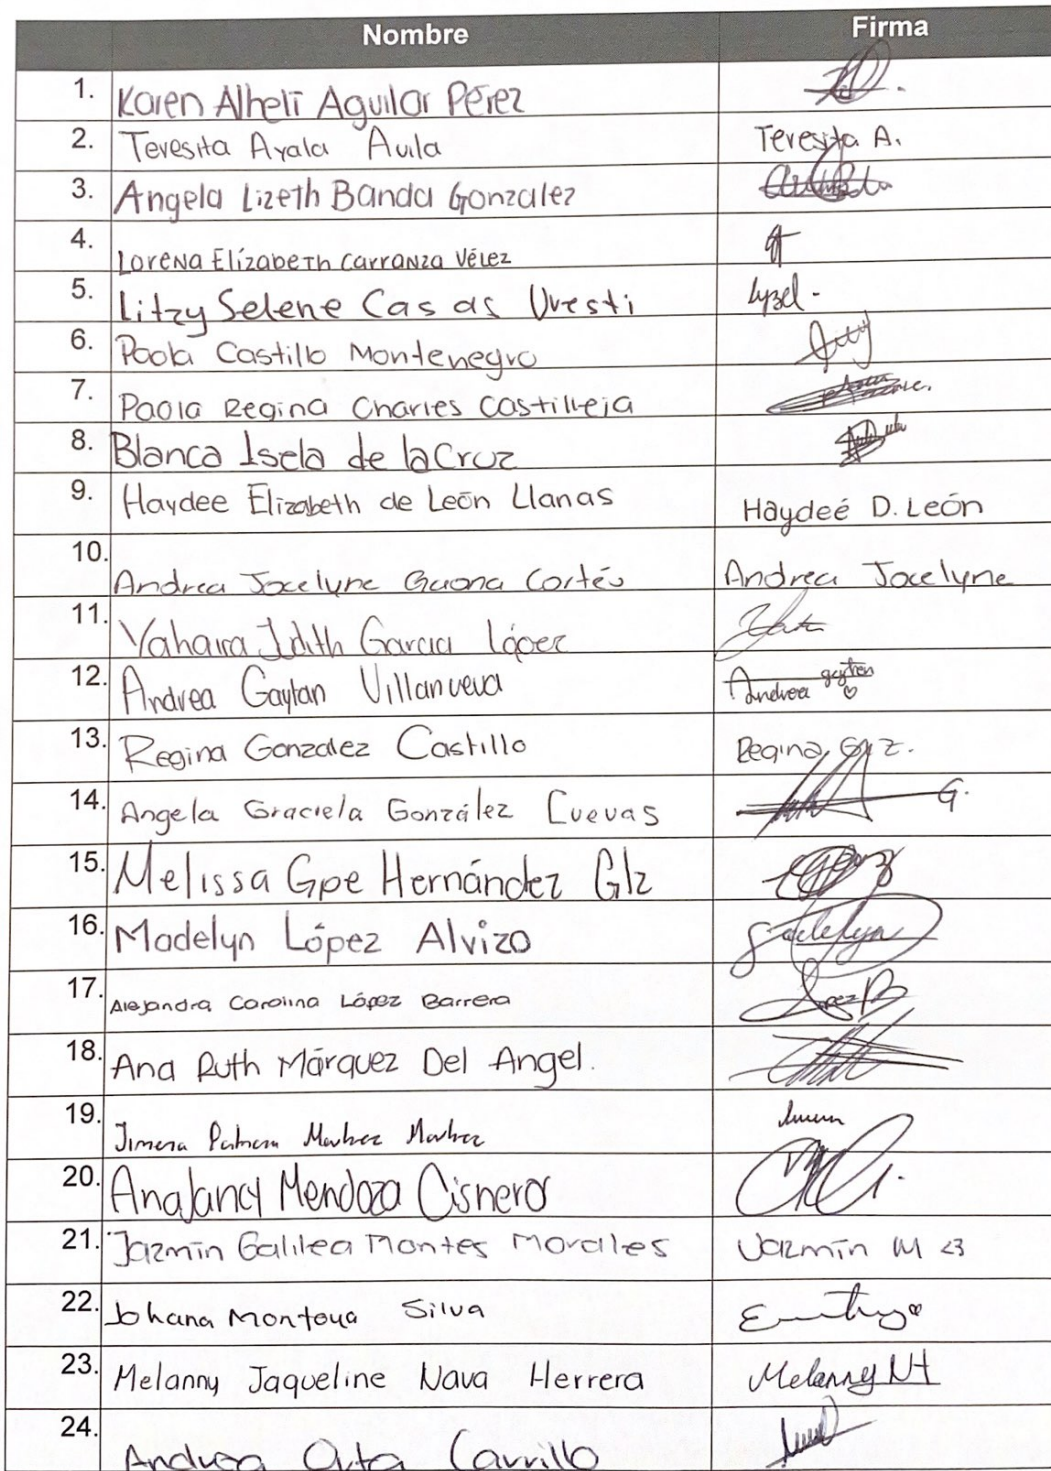 Nombre Firma
1. Karen Alhelí Aguilar Pérez
2. Teresita Ayala Avila Teresita A.
3. Angela Lizeth Banda Gonzalez
4. Lorena Elízabeth Carranza Vélez
5. Litzy Selene Casas Uresti Lyzel.
6. Paola Castillo Montenegro
7. Paola Regina Charles Castilleja
8. Blanca Isela de la Cruz
9. Haydee Elizabeth de León Llanas Haydeé D. León
10. Andrea Jocelyne Gaona Cortés Andrea Jocelyne
11. Yahaira Idith Garcia López
12. Andrea Gaytan Villanueva Andrea gaytan
13. Regina Gonzalez Castillo Regina Glz.
14. Angela Graciela González Cuevas G.
15. Melissa Gpe Hernández Glz
16. Madelyn López Alvizo
17. Alejandra Carolina López Barrera
18. Ana Ruth Márquez Del Angel.
19. Jimena
20. Anajancy Mendoza Cisneros
21. Jazmín Galilea Montes Morales Jazmín M <3
22. Johana Montoya Silva
23. Melanny Jaqueline Nava Herrera Melanny NH
24. Andrea Orta Carrillo